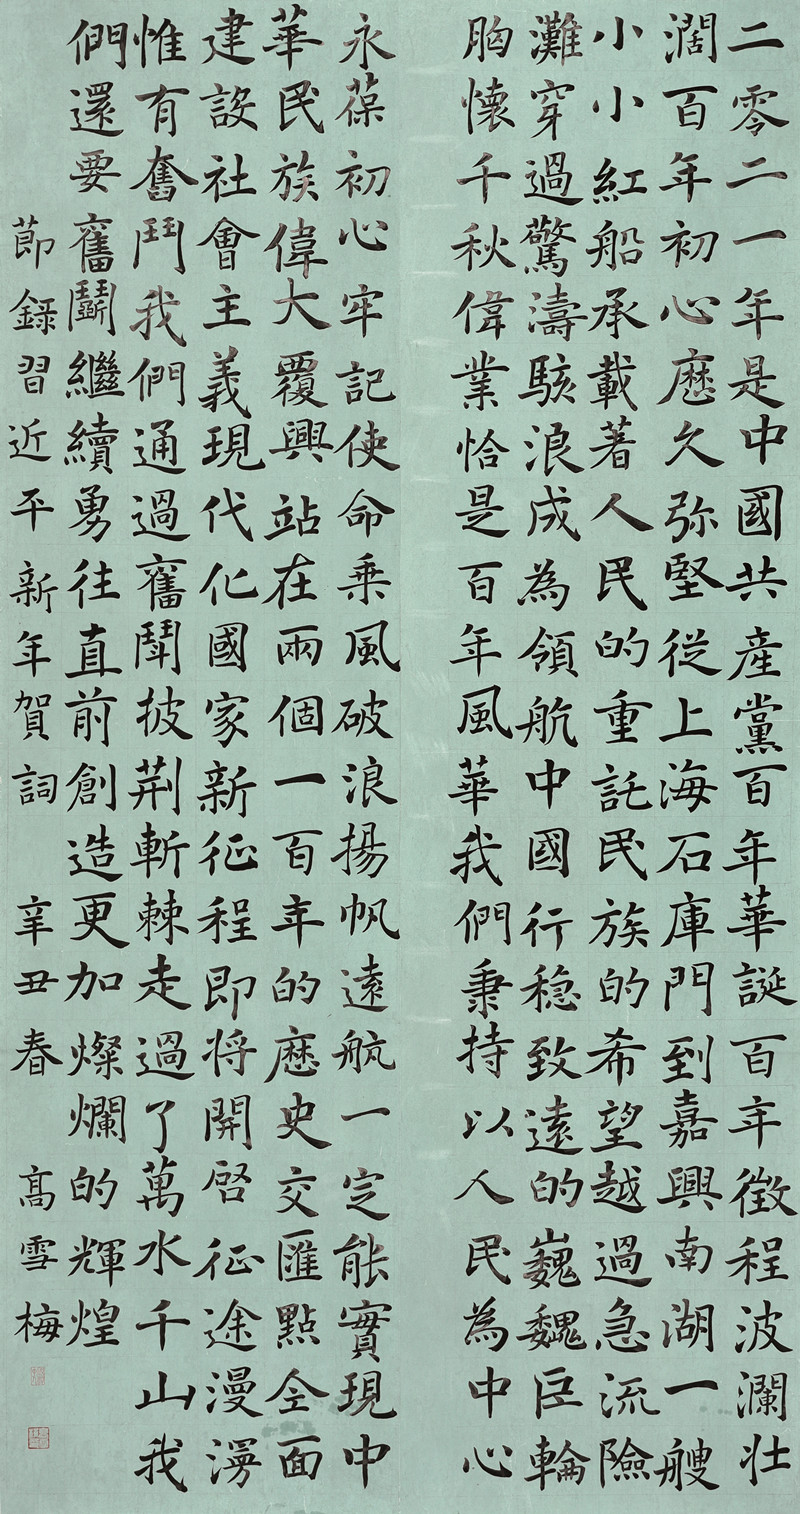 二零二一年是中國共產黨百年華誕百年徵程波瀾壯
濶百年初心厯久弥堅從上海石庫門到嘉興南湖一艘
小小紅船承載著人民的重託民族的希望越過急流險
灘穿過驚濤駭浪成為領航中國行稳致遠的巍巍巨輪
胸懷千秋偉業恰是百年風華我們秉持以人民為中心
永葆初心牢記使命乘風破浪揚帆遠航一定能實現中
華民族偉大覆興站在兩個一百年的厯史交匯點全面
建設社會主義現代化國家新征程即将開啓征途漫漫
惟有奮鬥我們通過舊鬥披荆斬棘走過了萬水千山我
們還要舊鬭繼續勇往直前創造更加燦爛的輝煌
節錄習近平新年賀詞 辛丑春 高雪梅